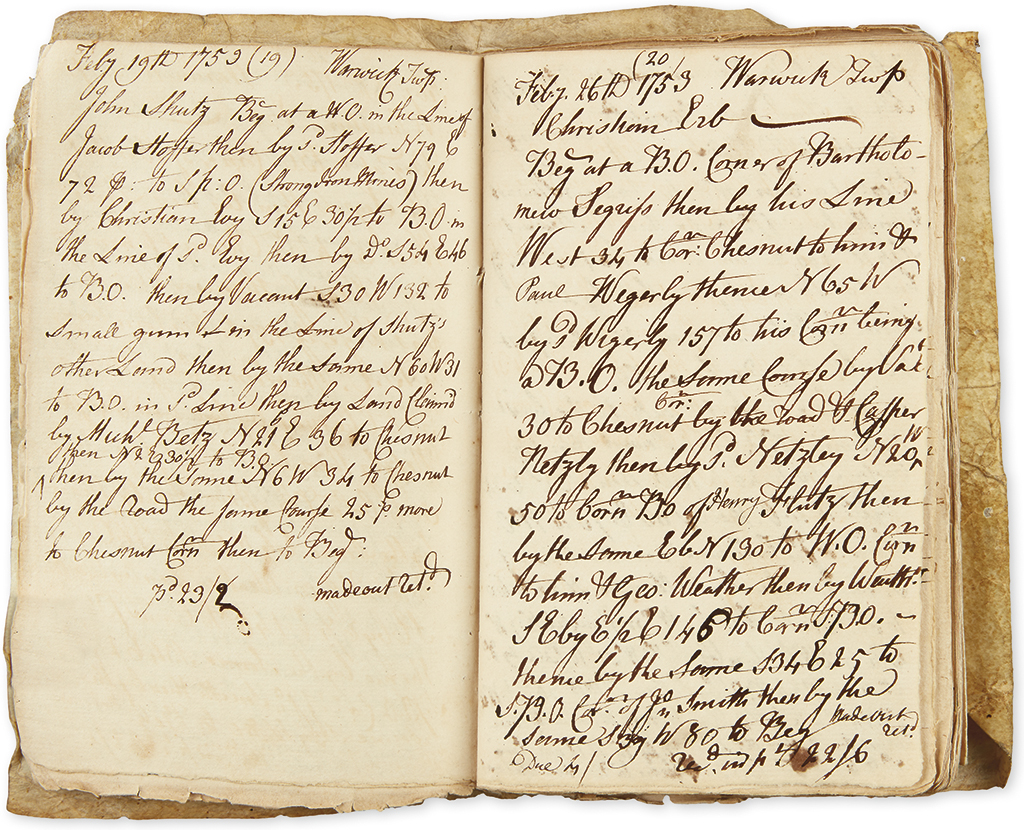 Feby 19th 1753 (19) Warwick Twp:
John Shutz Beg at a W.O. in the Line of
Jacob Hoffer then by Sd. Hoffer N 79 E
72 ps: to Sp: O. (Strong Iron Mines) then
by Christian Eby S 15 E 30 p to B.O. in
the Line of Sd. Eby then by Do. S 54 E 46
to B.O. then by Vacant S 30 W 132 to
Small gum & in the Line of Shutz's
other Land then by the Same N 60 W 31
to B.O. in Sd Line then by Land Claim'd
by Michl. Betz N 21 E 36 to Chesnut
then N 2 E 30 p to B.O.
then by the Same N 6 W 34 to Chesnut
by the Road the same Course 25 p more
to Chesnut Corn then to Beg:
pd. 23/2 made out Ret.d
(20)
Feby. 26th 1753 Warwick Twp
Christian Erb
Beg at a B.O. Corner of Bartholo-
mew Segriss then by his Line
West 34 to Cor: Chesnut to him &
Paul Wegerly thence N 65 W
by Sd Wegerly 157 to his Corn being
a B.O. the Same Course by Vat
30 to Chesnut Cor: by the Road & Casper
Netzly then by Sd. Netzley N 20 W
50 to Corn BO of Henry Shutz then
by the Same E b N 130 to W.O. Corn
to him & Geo: Weather then by Weathr
S E by E 1/2 E 146 to Corn S.B.O.
thence by the Same S 34 E 25 to
S.B.O. Cor: of Jn Smith then by the
Same S 39 W 80 to Beg Made out Ret.d
Due 4/ Recd in pt 22/6